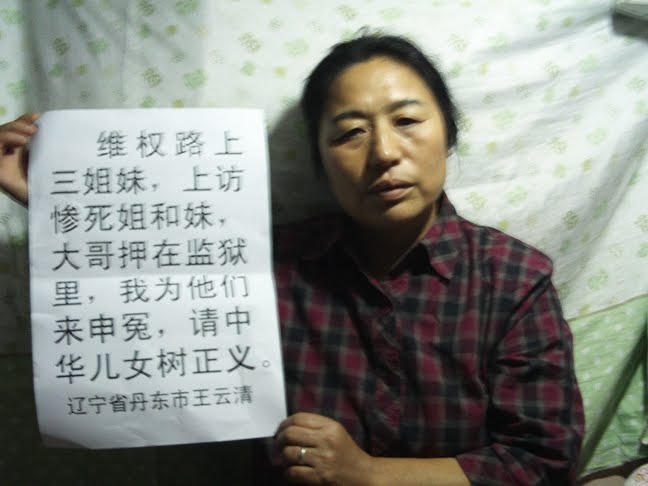 维权路上
三姐妹，上访
惨死姐和妹，
大哥押在监狱
里，我为他们
来申冤，请中
华儿女树正义。
辽宁省丹东市王云清